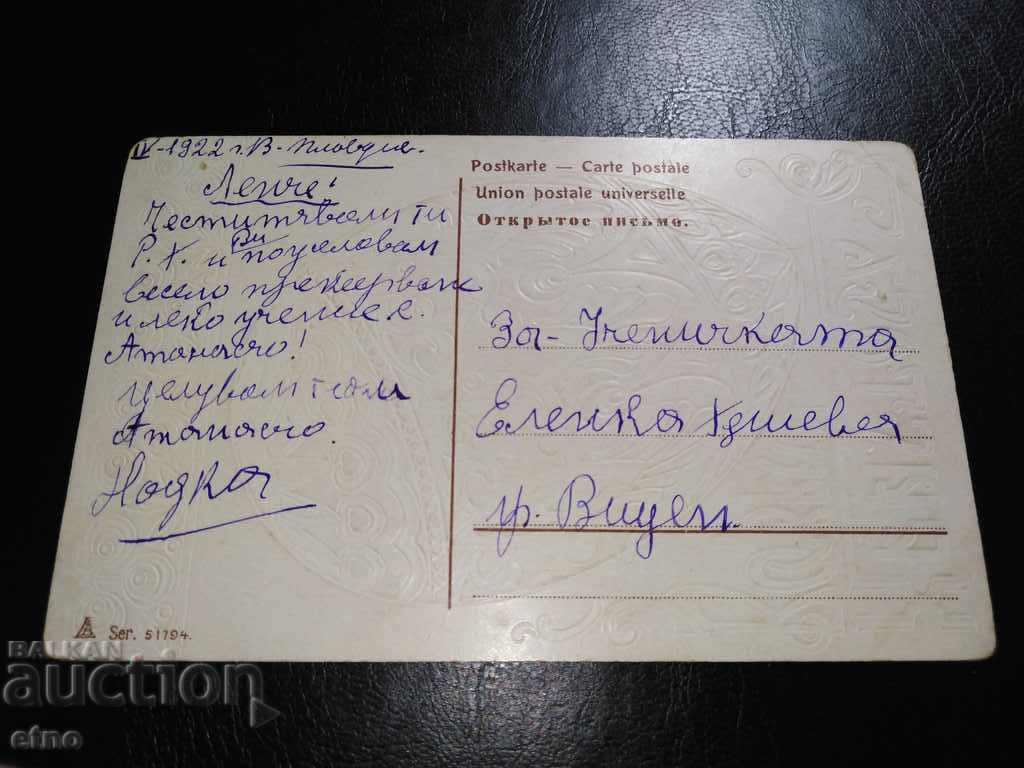 IV-1922 г. В-Пловдив.
Ленче!
Честитявам ти
Р. Х. и Ви поуеловам
весело прекарване
и леко учение.
Атанасчо!
Целувам те ам
Атанасчо.
Надка
Postkarte — Carte postale
Union postale universelle
Открытое письмо.
За - Ученичката
Еленка
гр. Видел.
Ser. 51794.
BALKAN
auction
etno